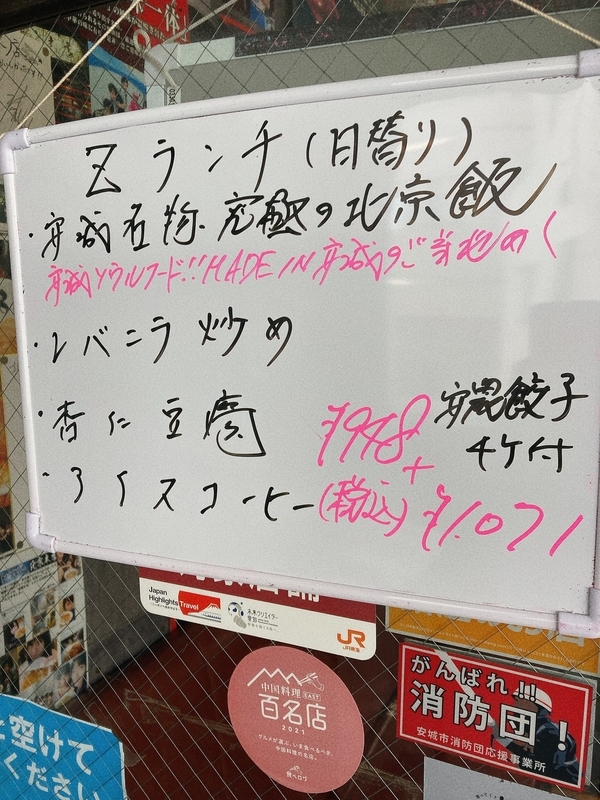 Zランチ(日替り)
・安城名物・究極の北京飯
安城ソウルフード!!MADE IN 安城のご当地めし
・レバニラ炒め
・杏仁豆腐
・アイスコーヒー
¥948+
(税込)¥1,071
安農餃子
4ケ付
Japan
Highlights Travel
未来クリエイター
JR
JR東海
中国料理
EAST
百名店
2021
グルメが選ぶ、いま食べるべき、
中国料理の名店。
食べログ
がんばれ!!!
消防団!
安城市消防団応援事業所
空けて
ください